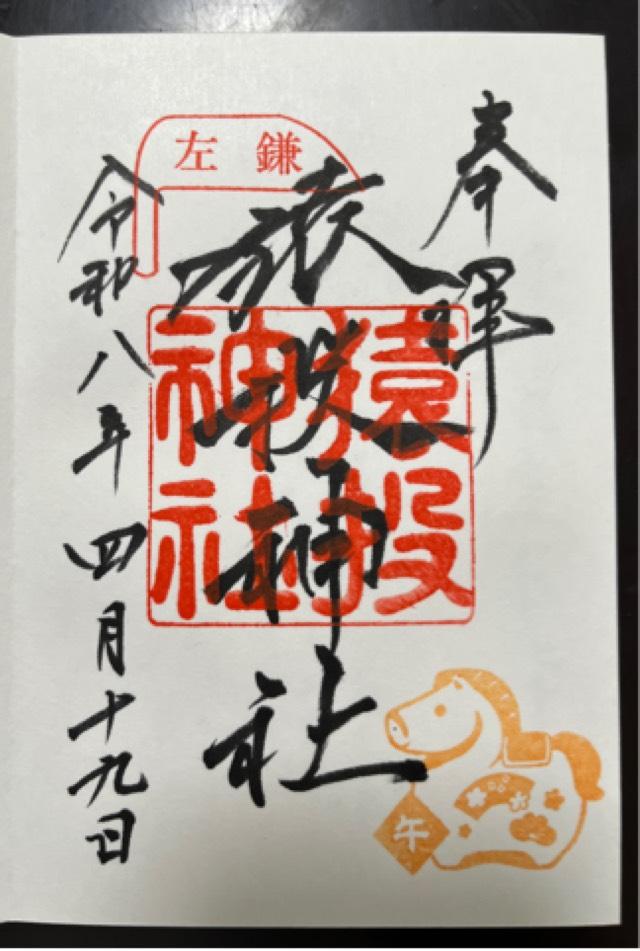 奉拝
左鎌
猿投神社
猿投
神社
令和八年四月十九日
午